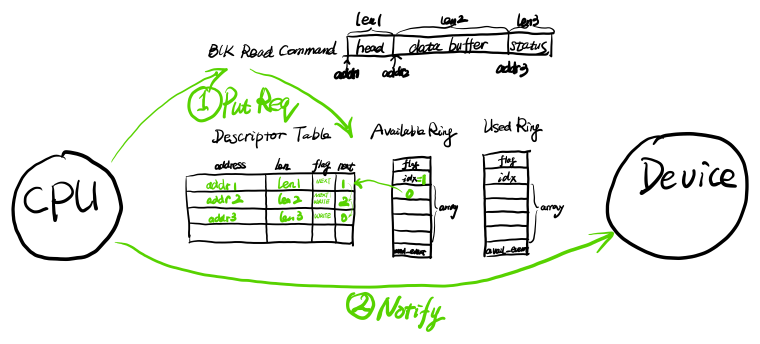 len1 len2 len3
BLK Read Command head data buffer status
addr1 addr2 addr3
① Put Req
Descriptor Table Available Ring Used Ring
address len flag next
addr1 len1 NEXT 1
addr2 len2 NEXT WRITE 2
addr3 len3 WRITE 0
flag
idx=1
0
array
used_event
flag
idx
array
avail_event
CPU
Device
② Notify